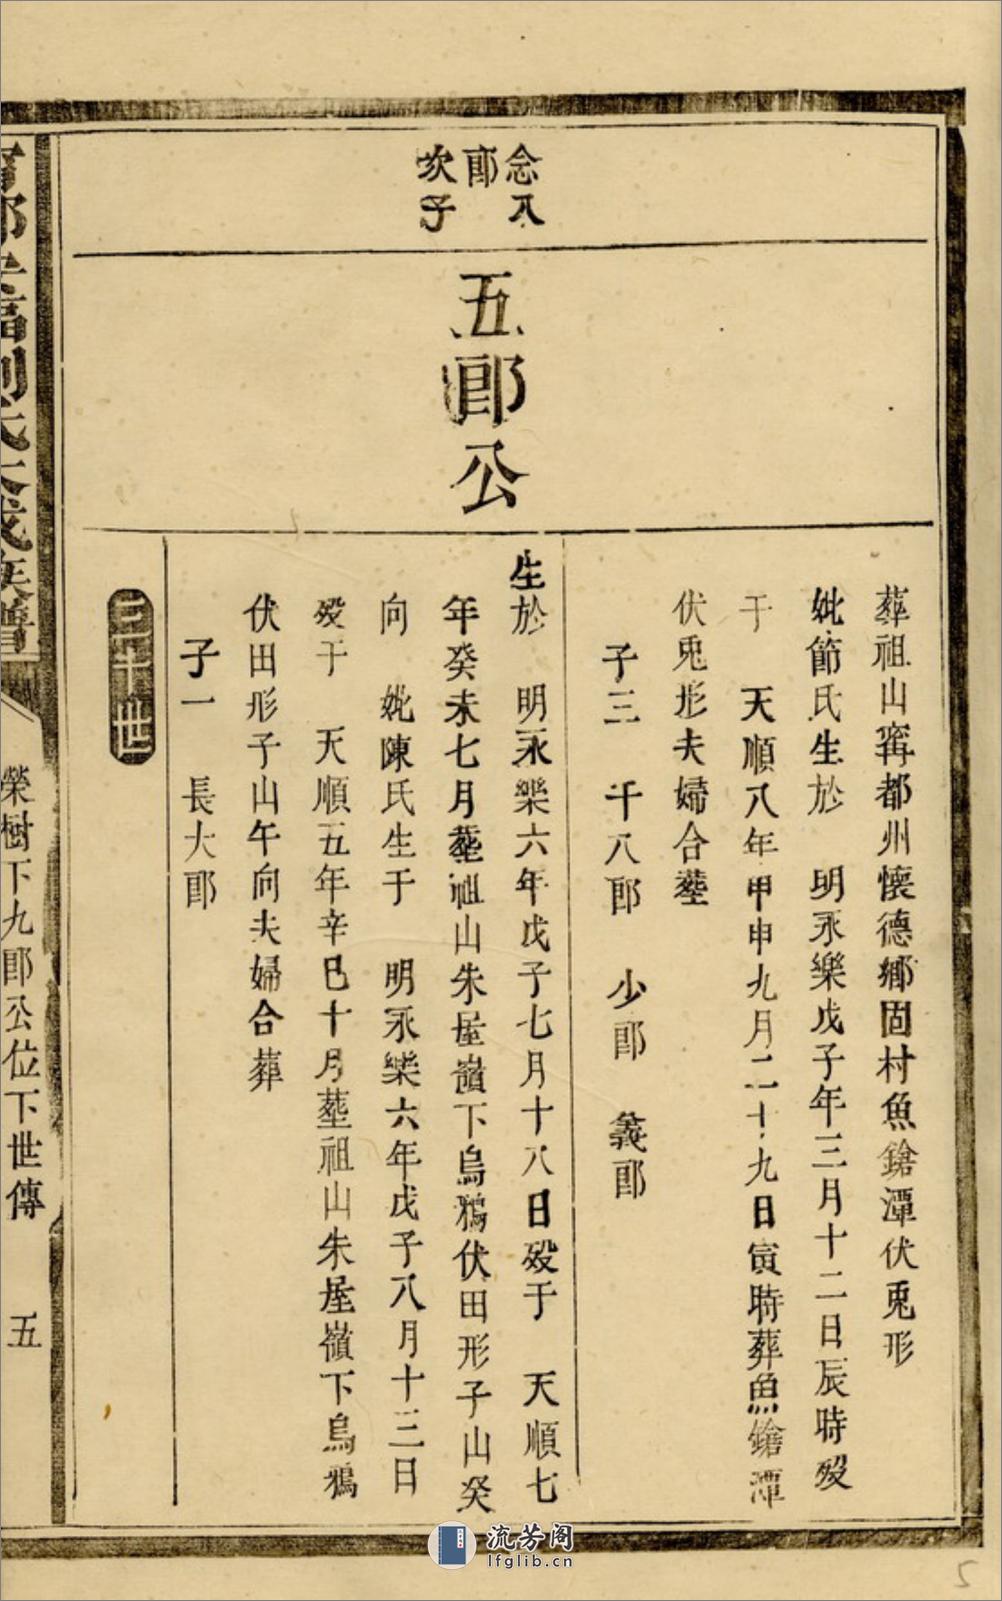 葬祖山寗都州懷德鄉固村魚鎗潭伏兎形
妣節氏生於　明永樂戊子年三月十二日辰時歿
于　天順八年甲申九月二十九日寅時葬魚鎗潭
伏兎形夫婦合塟
子三　千八郎　少郎　義郎
念八
郎
次子
五郎公
生於　明永樂六年戊子七月十八日歿于　天順七
年癸未七月塟祖山朱屋嶺下烏鴉伏田形子山癸
向　妣陳氏生于　明永樂六年戊子八月十三日
歿于　天順五年辛巳十月塟祖山朱屋嶺下烏鴉
伏田形子山午向夫婦合葬
子一　長大郎
三十世
劉氏大成族譜
榮樹下九郎公位下世傳　五
流芳阁
lfglib.cn
5